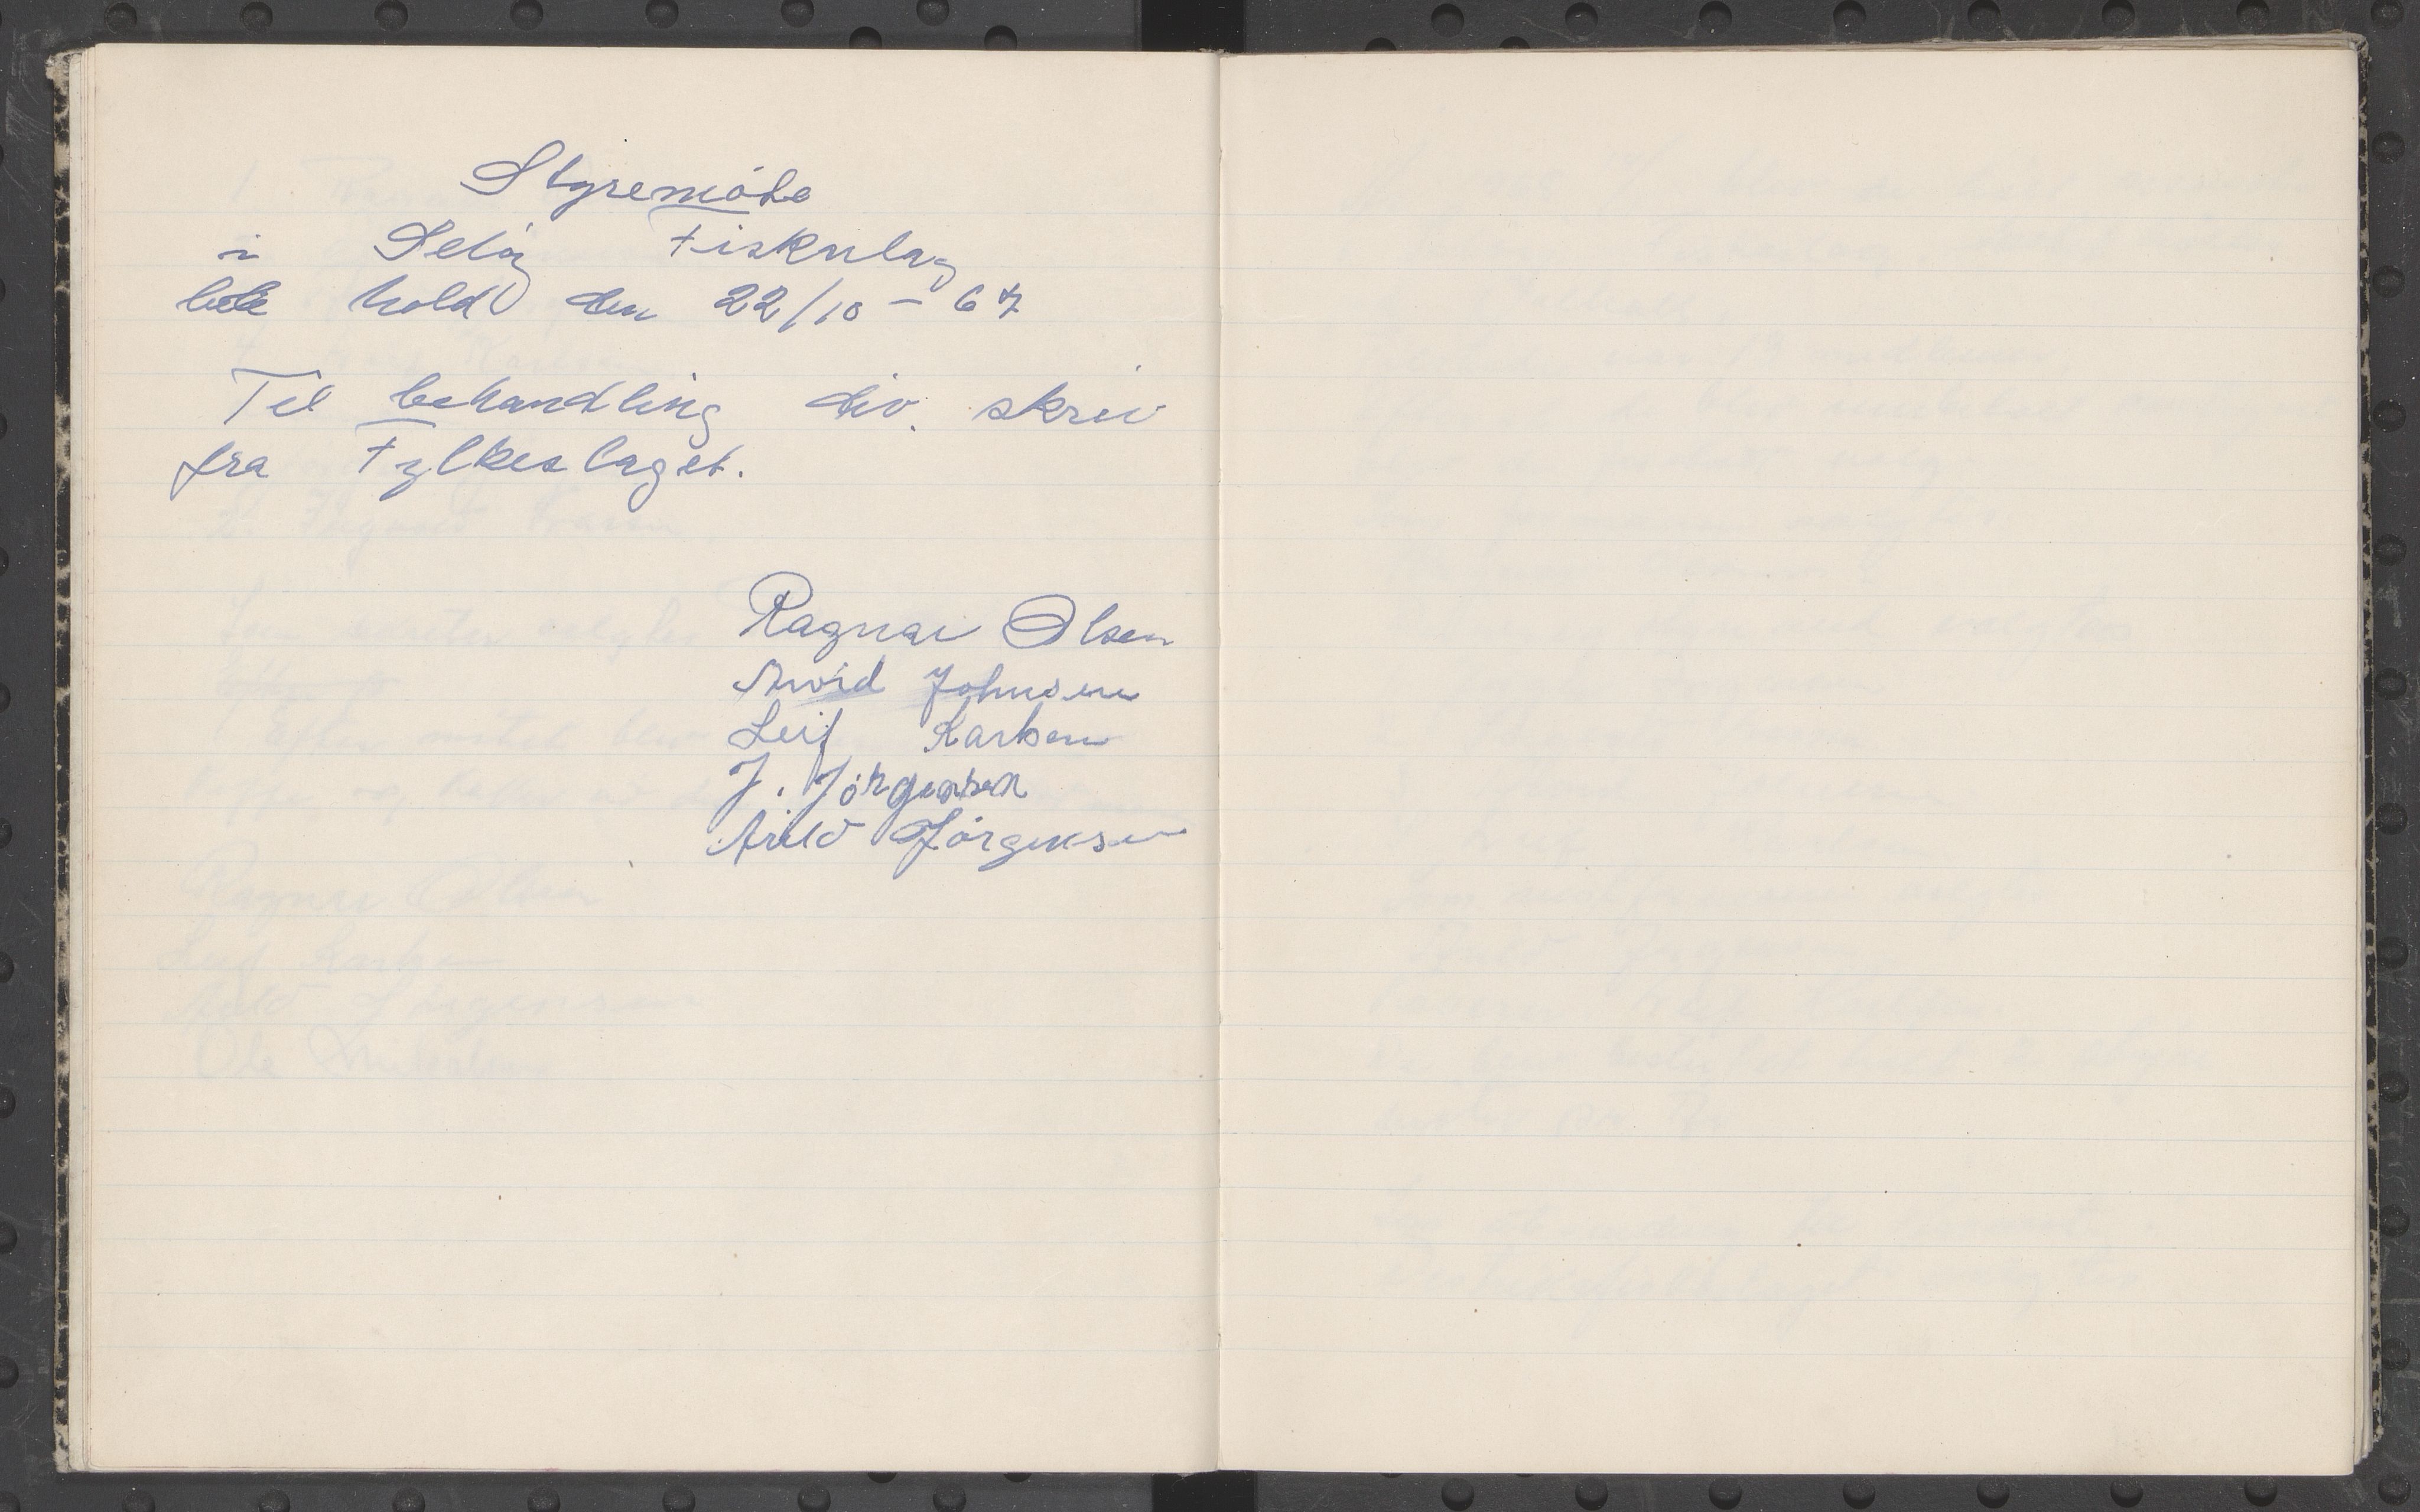 Styremöte
i Selöy Fiskarlag
ble hold den 22/10 - 67
Til behandling div. skriv
fra Fylkeslaget.
Ragnar Olsen
Arvid Johnsen
Leif Karlsen
J. Jörgensen
Arild Jörgensen